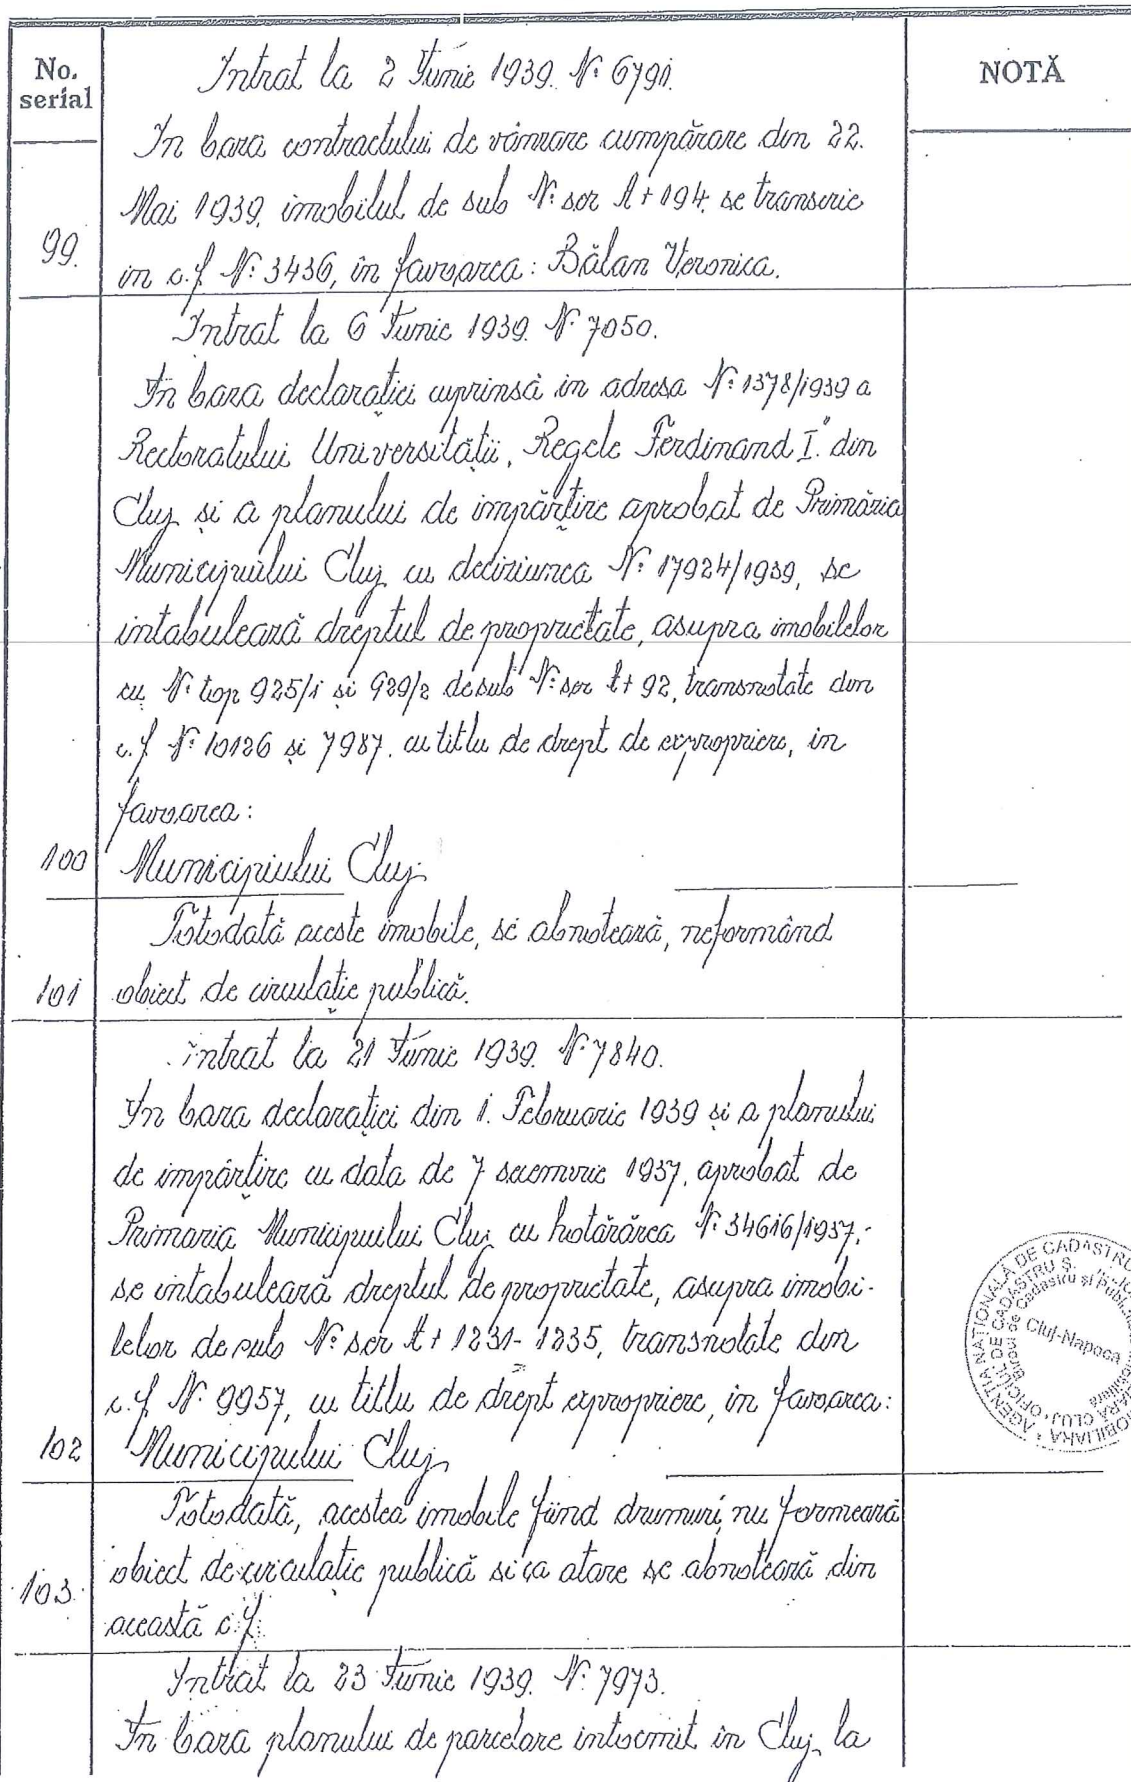 No. serial
NOTĂ
Intrat la 2 Iunie 1939. Nº 6791.
In baza contractului de vânzare cumpărare din 22.
Mai 1939, imobilul de sub Nº ser A + 194. se transcrie
99. in c.f Nº 3436, în favoarea: Bălan Veronica.
Intrat la 6 Iunie 1939. Nº 7050.
In baza declarației cuprinsă in adresa Nº 1378/1939 a
Rectoratului Universității, Regele Ferdinand I." din
Cluj și a planului de împărțire aprobat de Primăria
Municipiului Cluj cu deciziunea Nº 17924/1939, se
intabulează dreptul de proprietate, asupra imobilelor
cu Nº top 925/1 si 929/2 desub Nº ser A + 92, transnotate din
c.f Nº 10126 si 7987. cu titlu de drept de expropriere, in
favoarea:
100 Municipiului Cluj
Totodată aceste imobile, se abnotează, neformând
101 obiect de circulație publică.
Intrat la 21 Iunie 1939. Nº 7840.
In baza declarației din 1. Februarie 1939 si a planului
de împărțire cu data de 7 decemvrie 1937, aprobat de
Primaria Municipiului Cluj cu hotărârea Nº 34616/1937,-
se intabulează dreptul de proprietate, asupra imobi-
lelor de sub Nº ser A + 1231-1235, transnotate din
c.f Nº 9957, cu titlu de drept expropriere, in favoarea:
102 Municipiului Cluj
Totodată, acestea imobile fiind drumuri, nu formează
obiect de circulație publică si ca atare se abnotează din
103. această c.f.
Intrat la 23 Iunie 1939. Nº 7973.
In baza planului de parcelare intocmit în Cluj, la
AGENȚIA NAȚIONALĂ DE CADASTRU
Cluj-Napoca